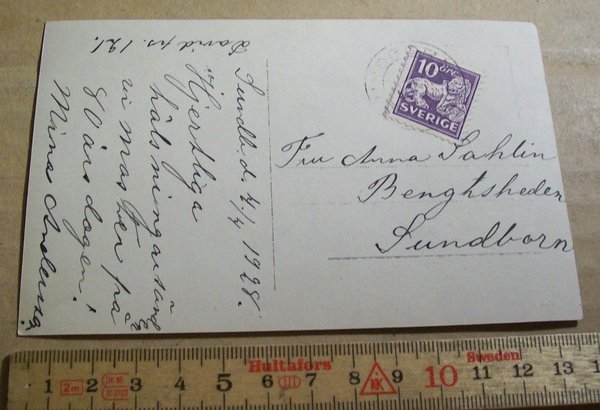 David ps. 121.
Sundb. d. 4/4 1928.
Hjertliga
hälsningar
vi
er på
80 års dagen!
Mina
10 ÖRE
SVERIGE
Fru Anna Sahlin
Bengtsheden
Sundborn
Hultafors
Sweden
1 2m 2 3 4 5 6 7 8 9 10 11 12 13 1